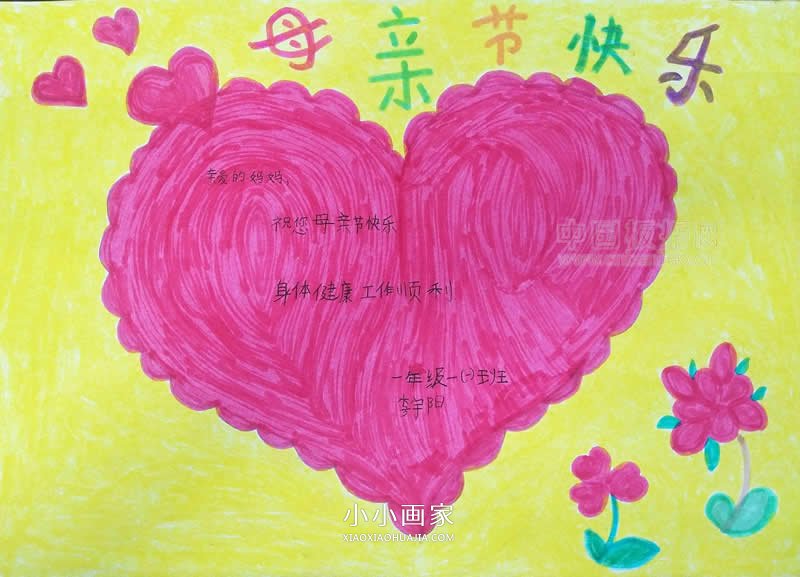 母亲节快乐
亲爱的妈妈，
祝您母亲节快乐
身体健康工作顺利
一年级一(一)班
李宇阳
小小画家
XIAOXIAOHUAJIA.COM